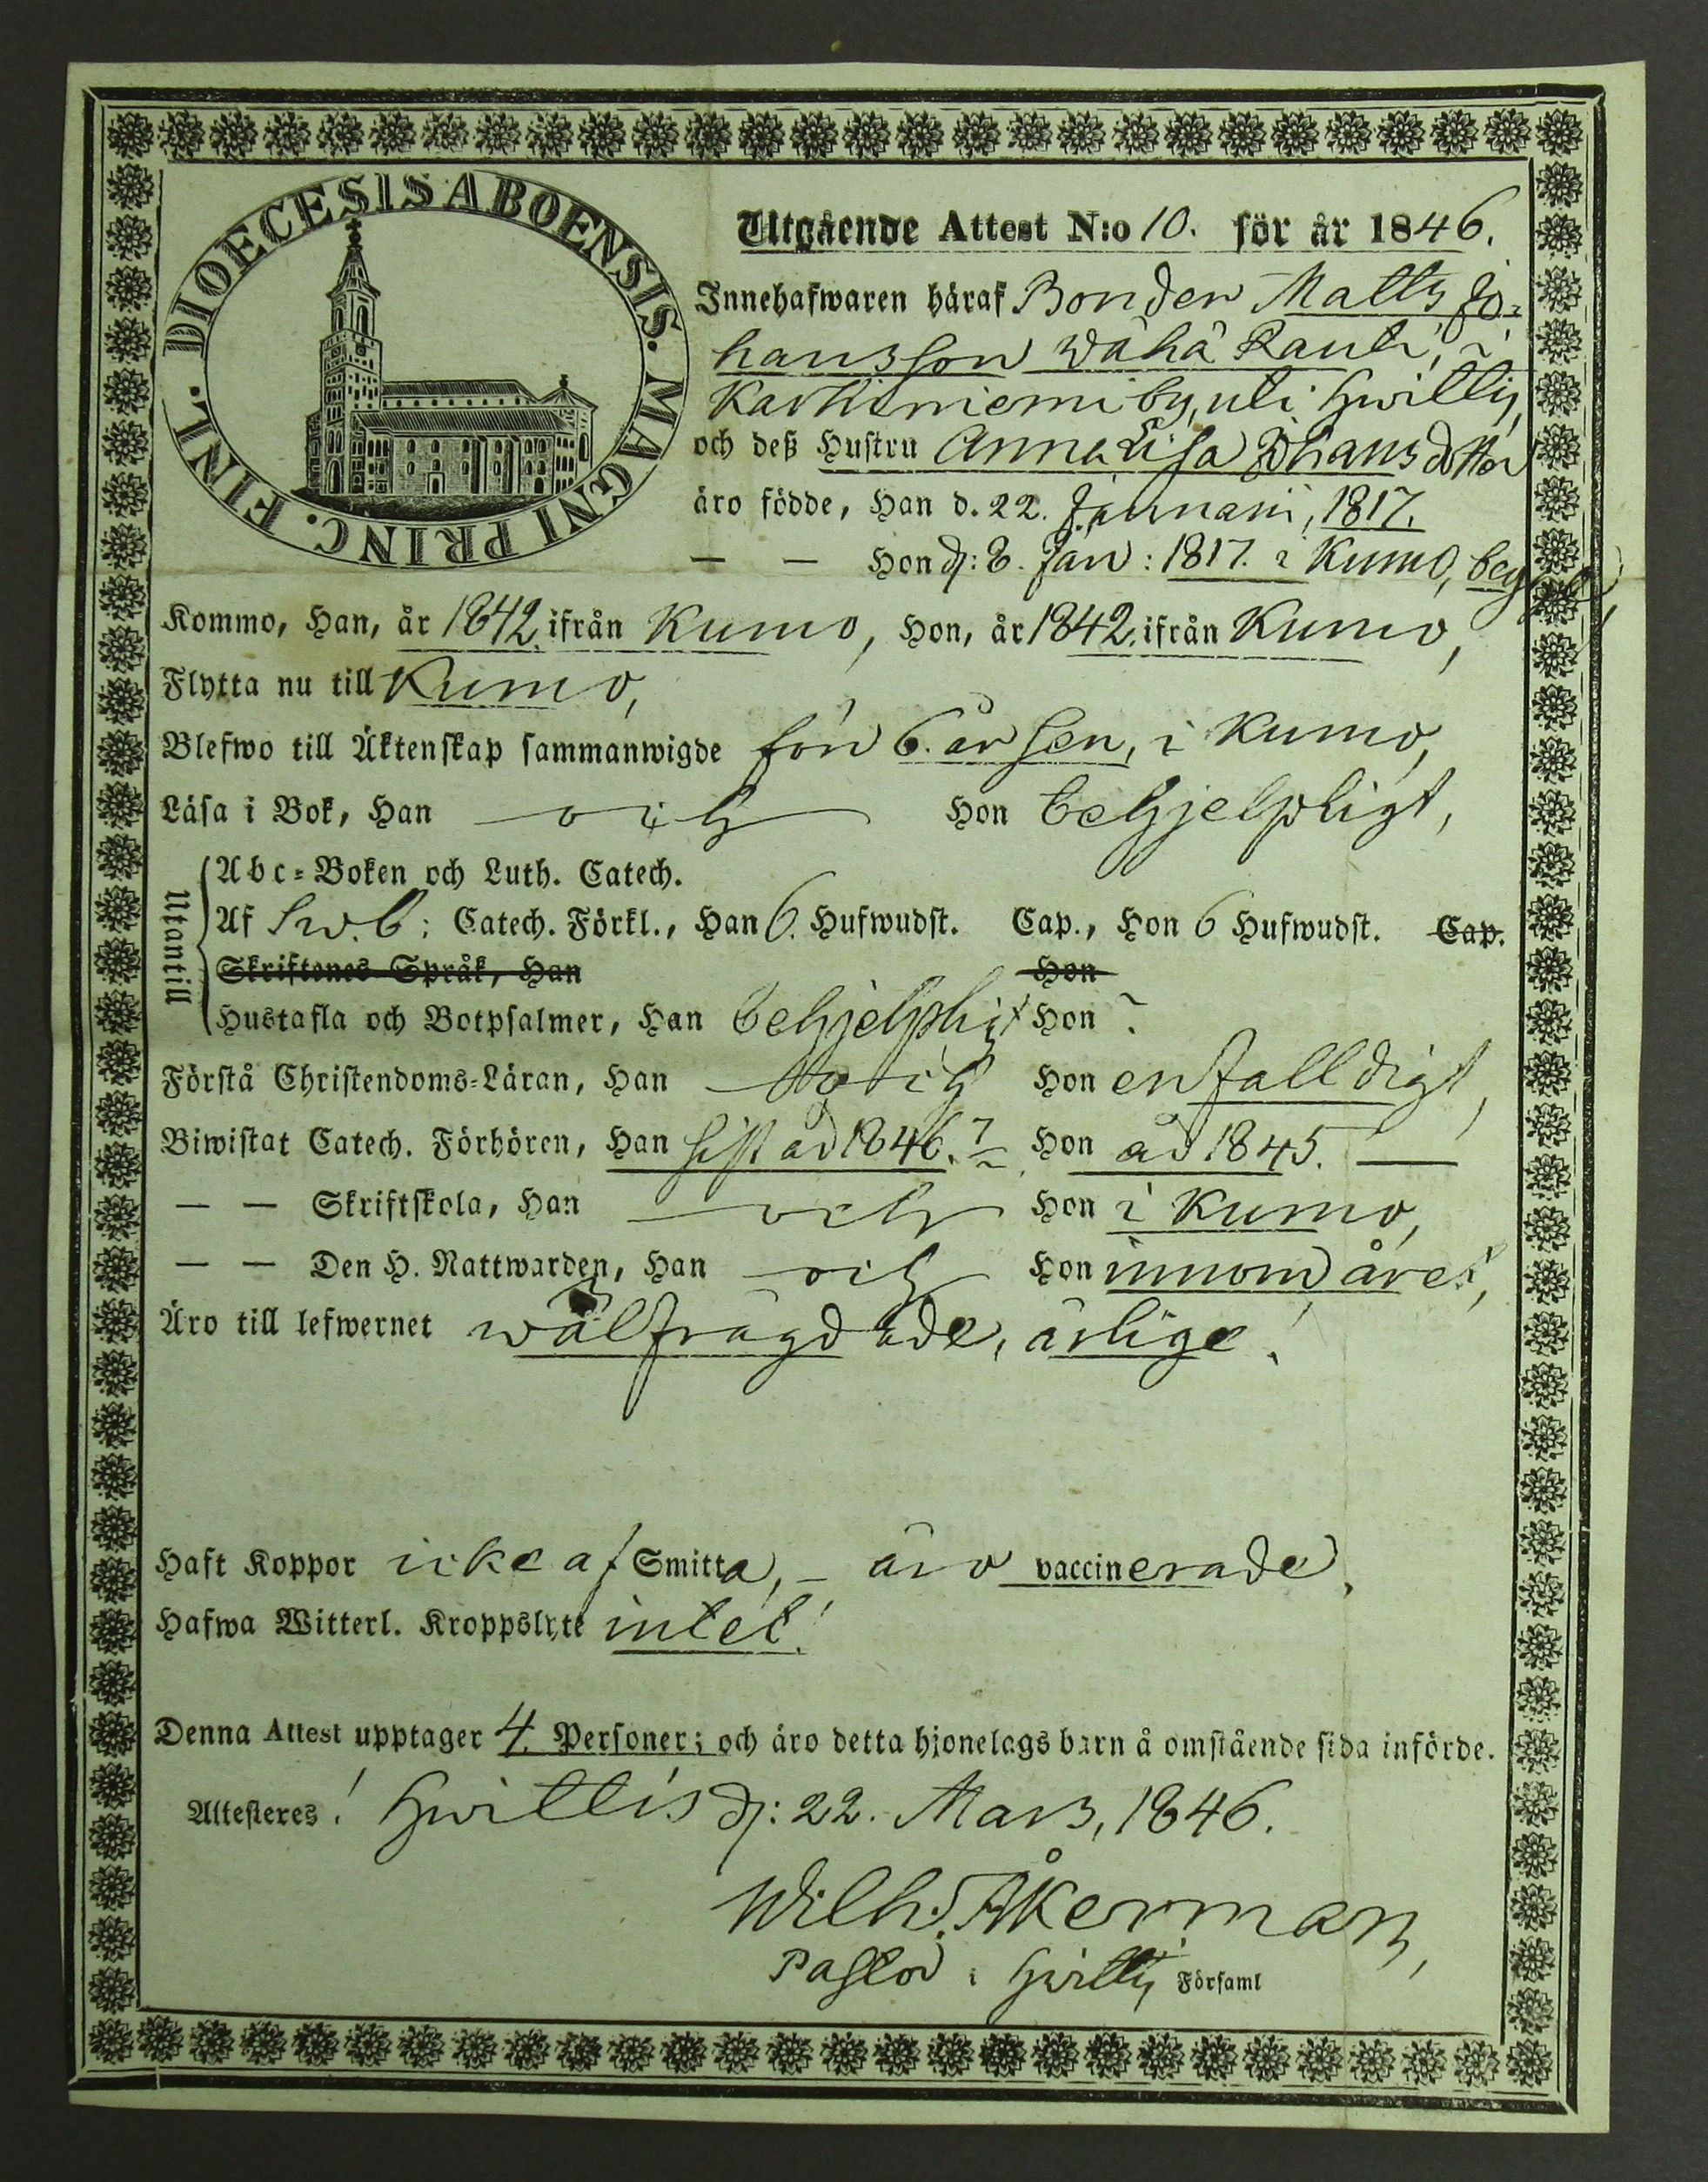 DIOECESIS ABOENSIS. MAGNI PRINC. FINL.
Utgående Attest N:o 10. för år 1846.
Innehafwaren häraf Bonden Matts Jo-
hansson Wähä Rauti, i
Karhiniemi by, uti Hwittis,
och deß Hustru Anna Lisa Johansdotter
äro födde, Han d. 22. Januarii, 1817.
— — Hon d: 8. Jan: 1817. i Kumo,
Kommo, Han, år 1842. ifrån Kumo, Hon, år 1842. ifrån Kumo,
Flytta nu till Kumo,
Blefwo till Äktenskap sammanwigde för 6. år sen, i Kumo,
Läsa i Bok, Han — och — Hon behjelpligt,
Utantill
Abc-Boken och Luth. Catech.
Af Sw.b: Catech. Förkl., Han 6. Hufwudst. Cap., Hon 6 Hufwudst. Cap.
Skriftenes Språk, Han Hon
Hustafla och Botpsalmer, Han behjelpligt Hon
Förstå Christendoms-Läran, Han och Hon enfalldigt,
Biwistat Catech. Förhören, Han sist år 1846. Hon år 1845. —
— — Skriftskola, Han — och Hon i Kumo,
— — Den H. Nattwarden, Han — och Hon innom året,
Äro till lefwernet wälfrägdade, ärlige!
Haft Koppor icke af Smitta, – äro vaccinerade,
Hafwa Witterl. Kroppslyte intet!
Denna Attest upptager 4. Personer; och äro detta hjonelags barn å omstående sida införde.
Attesteres! Hwittis d: 22. Mars, 1846.
Wilh. Åkerman,
Pastor i Hwittis Församl